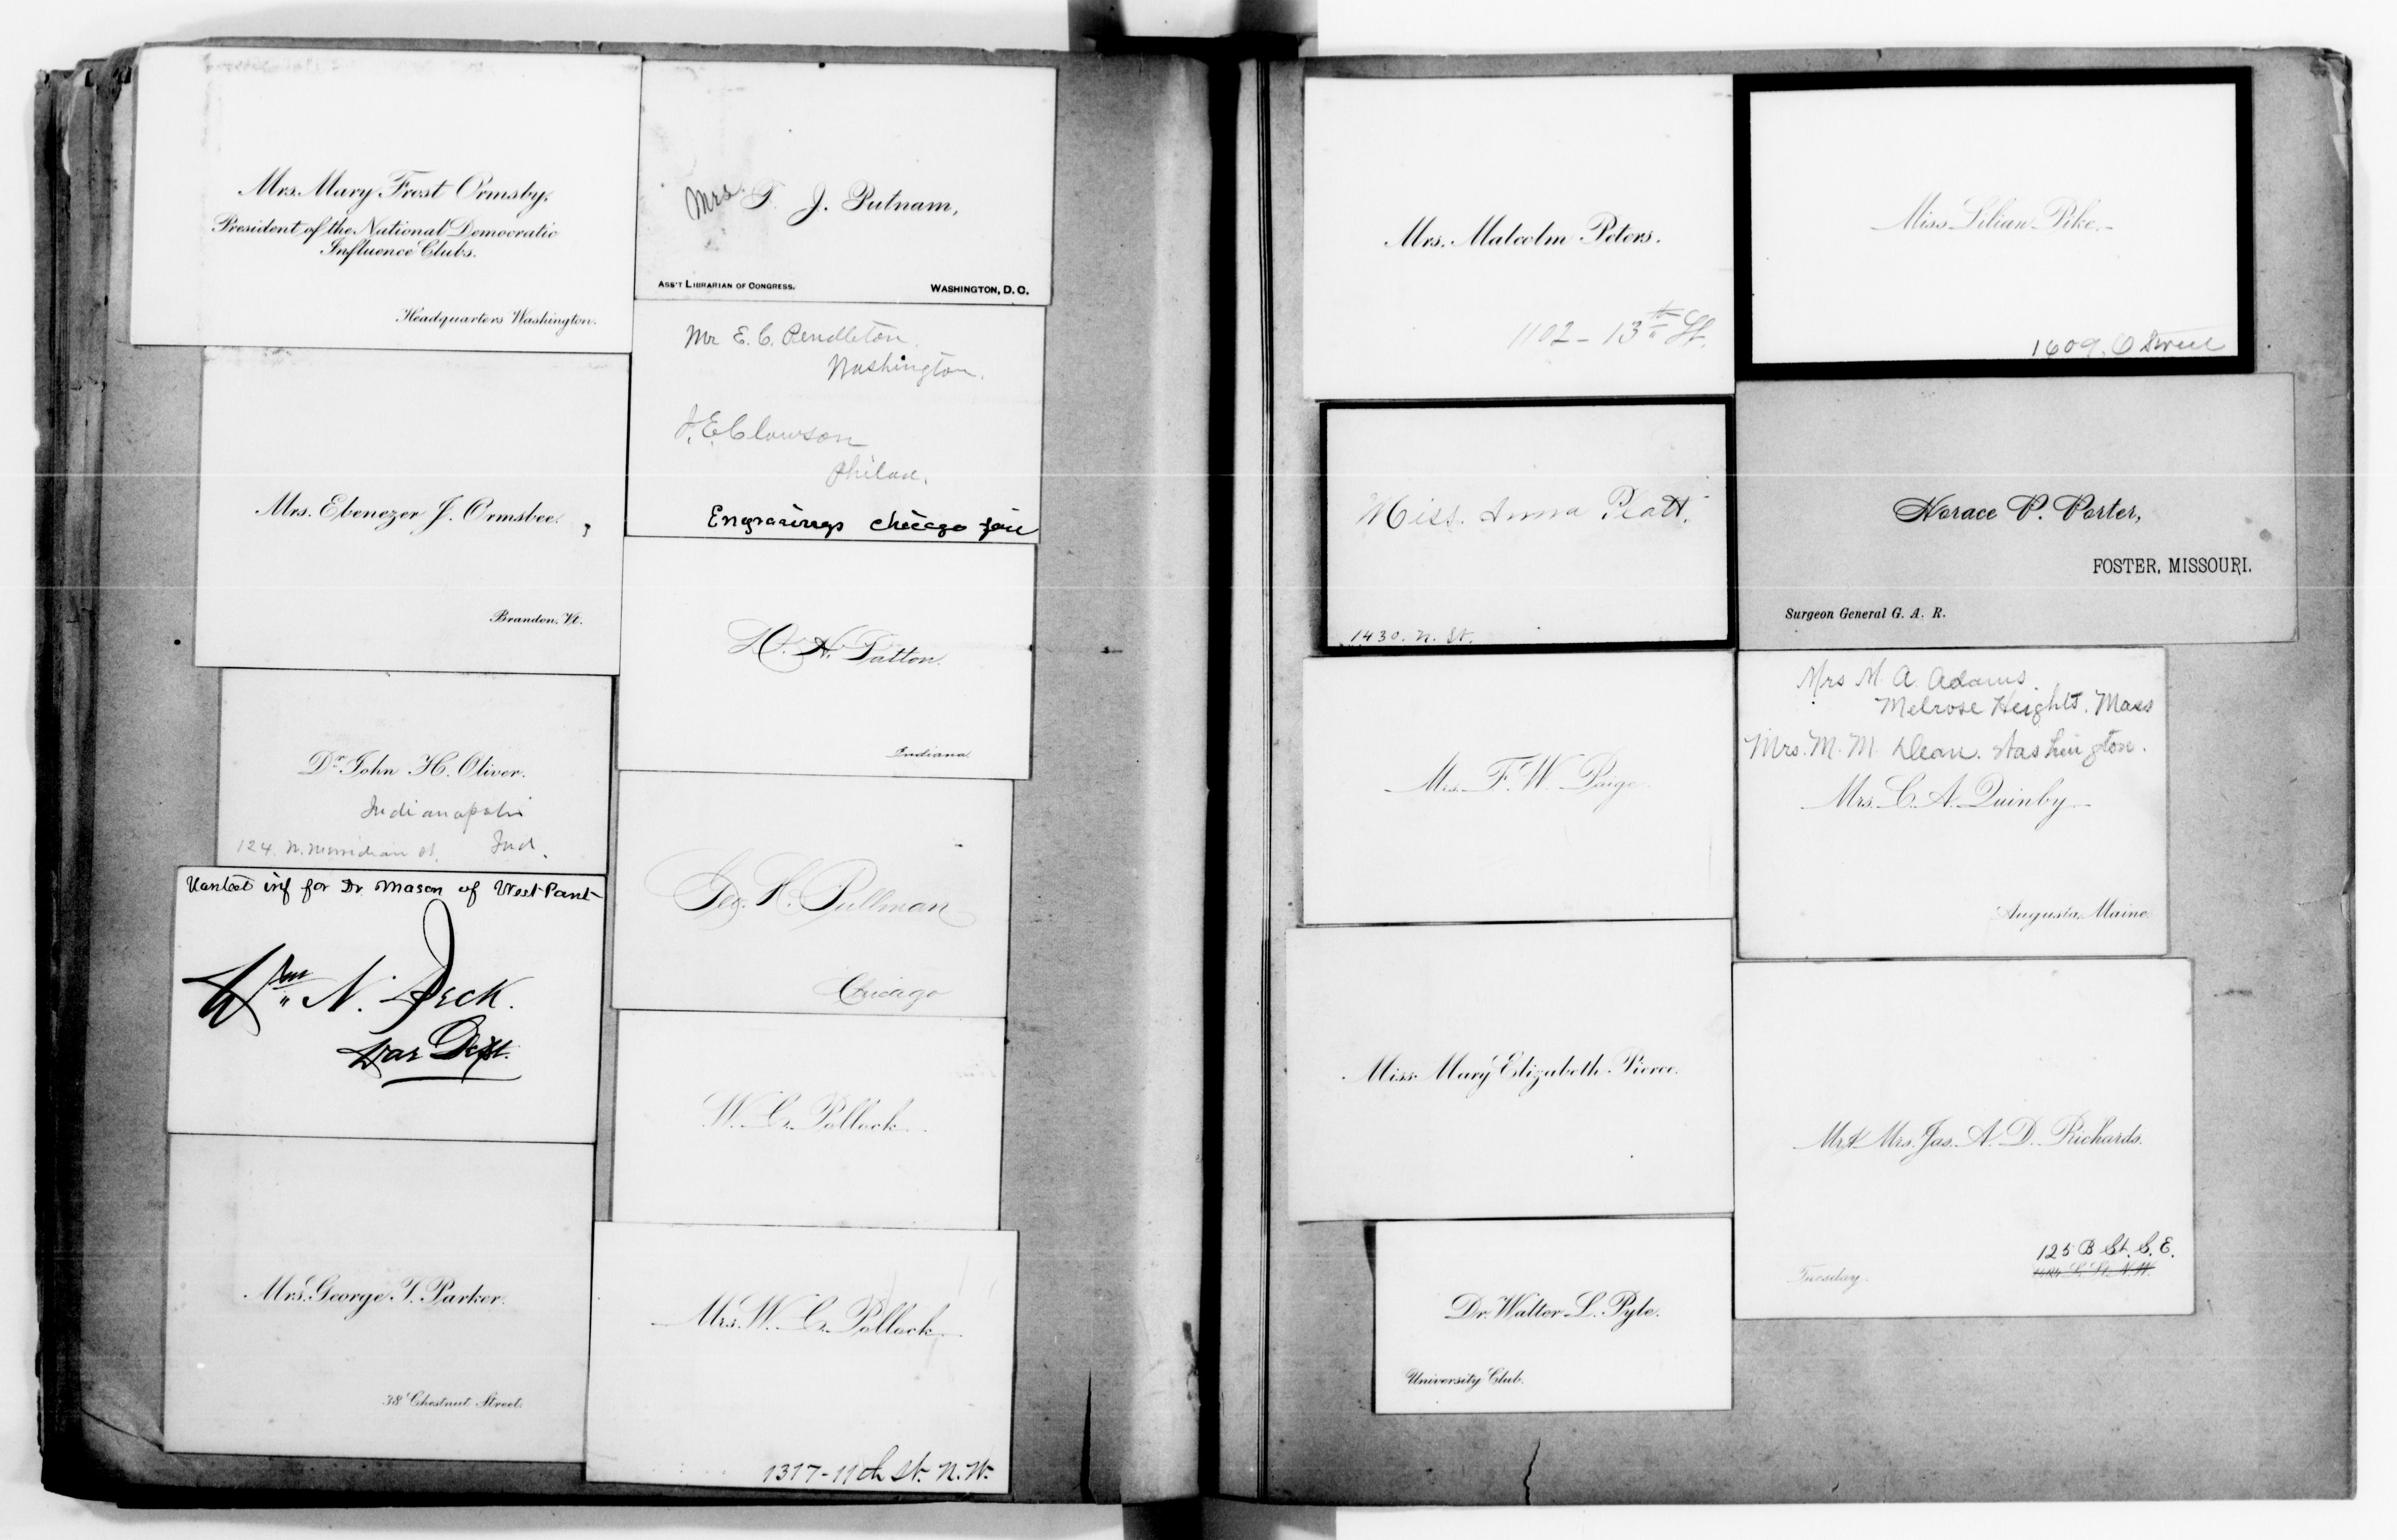 Mrs. Mary Frost Ormsby,
President of the National Democratic
Influence Clubs.
Headquarters Washington.
Mrs. Ebenezer J. Ormsbee.
Brandon, Vt.
Dr. John H. Oliver.
Indianapolis
124. N. Meridian St. Ind.
Wanted inf for Dr. Mason of West Point
Wm. N. Peck.
War Dept.
Mrs. George T. Parker.
38 Chestnut Street.
Mrs. F. J. Putnam,
ASS'T LIBRARIAN OF CONGRESS. WASHINGTON, D. C.
Mr E. C. Pendleton.
Washington.
J. E. Clawson
Philad.
Engravings Chicago fair
H. Patton.
Indiana.
Geo. M. Pullman
Chicago
W. C. Pollock.
Mrs. W. C. Pollock.
1317-11th St. N.W.
Mrs. Malcolm Peters.
1102-13th St.
Miss Anna Platt.
1430. N. St.
Mrs. F. W. Paige.
Miss Mary Elizabeth Pierce.
Dr. Walter L. Pyle.
University Club.
Miss Lilian Pike.
1609. O Street
Horace P. Porter,
FOSTER, MISSOURI.
Surgeon General G. A. R.
Mrs M. A. Adams.
Melrose Heights. Mass
Mrs. M. M. Dean. Washington.
Mrs. C. A. Quinby.
Augusta, Maine.
Mr. & Mrs. Jas. A. D. Richards.
125 B St. S. E.
Tuesday.